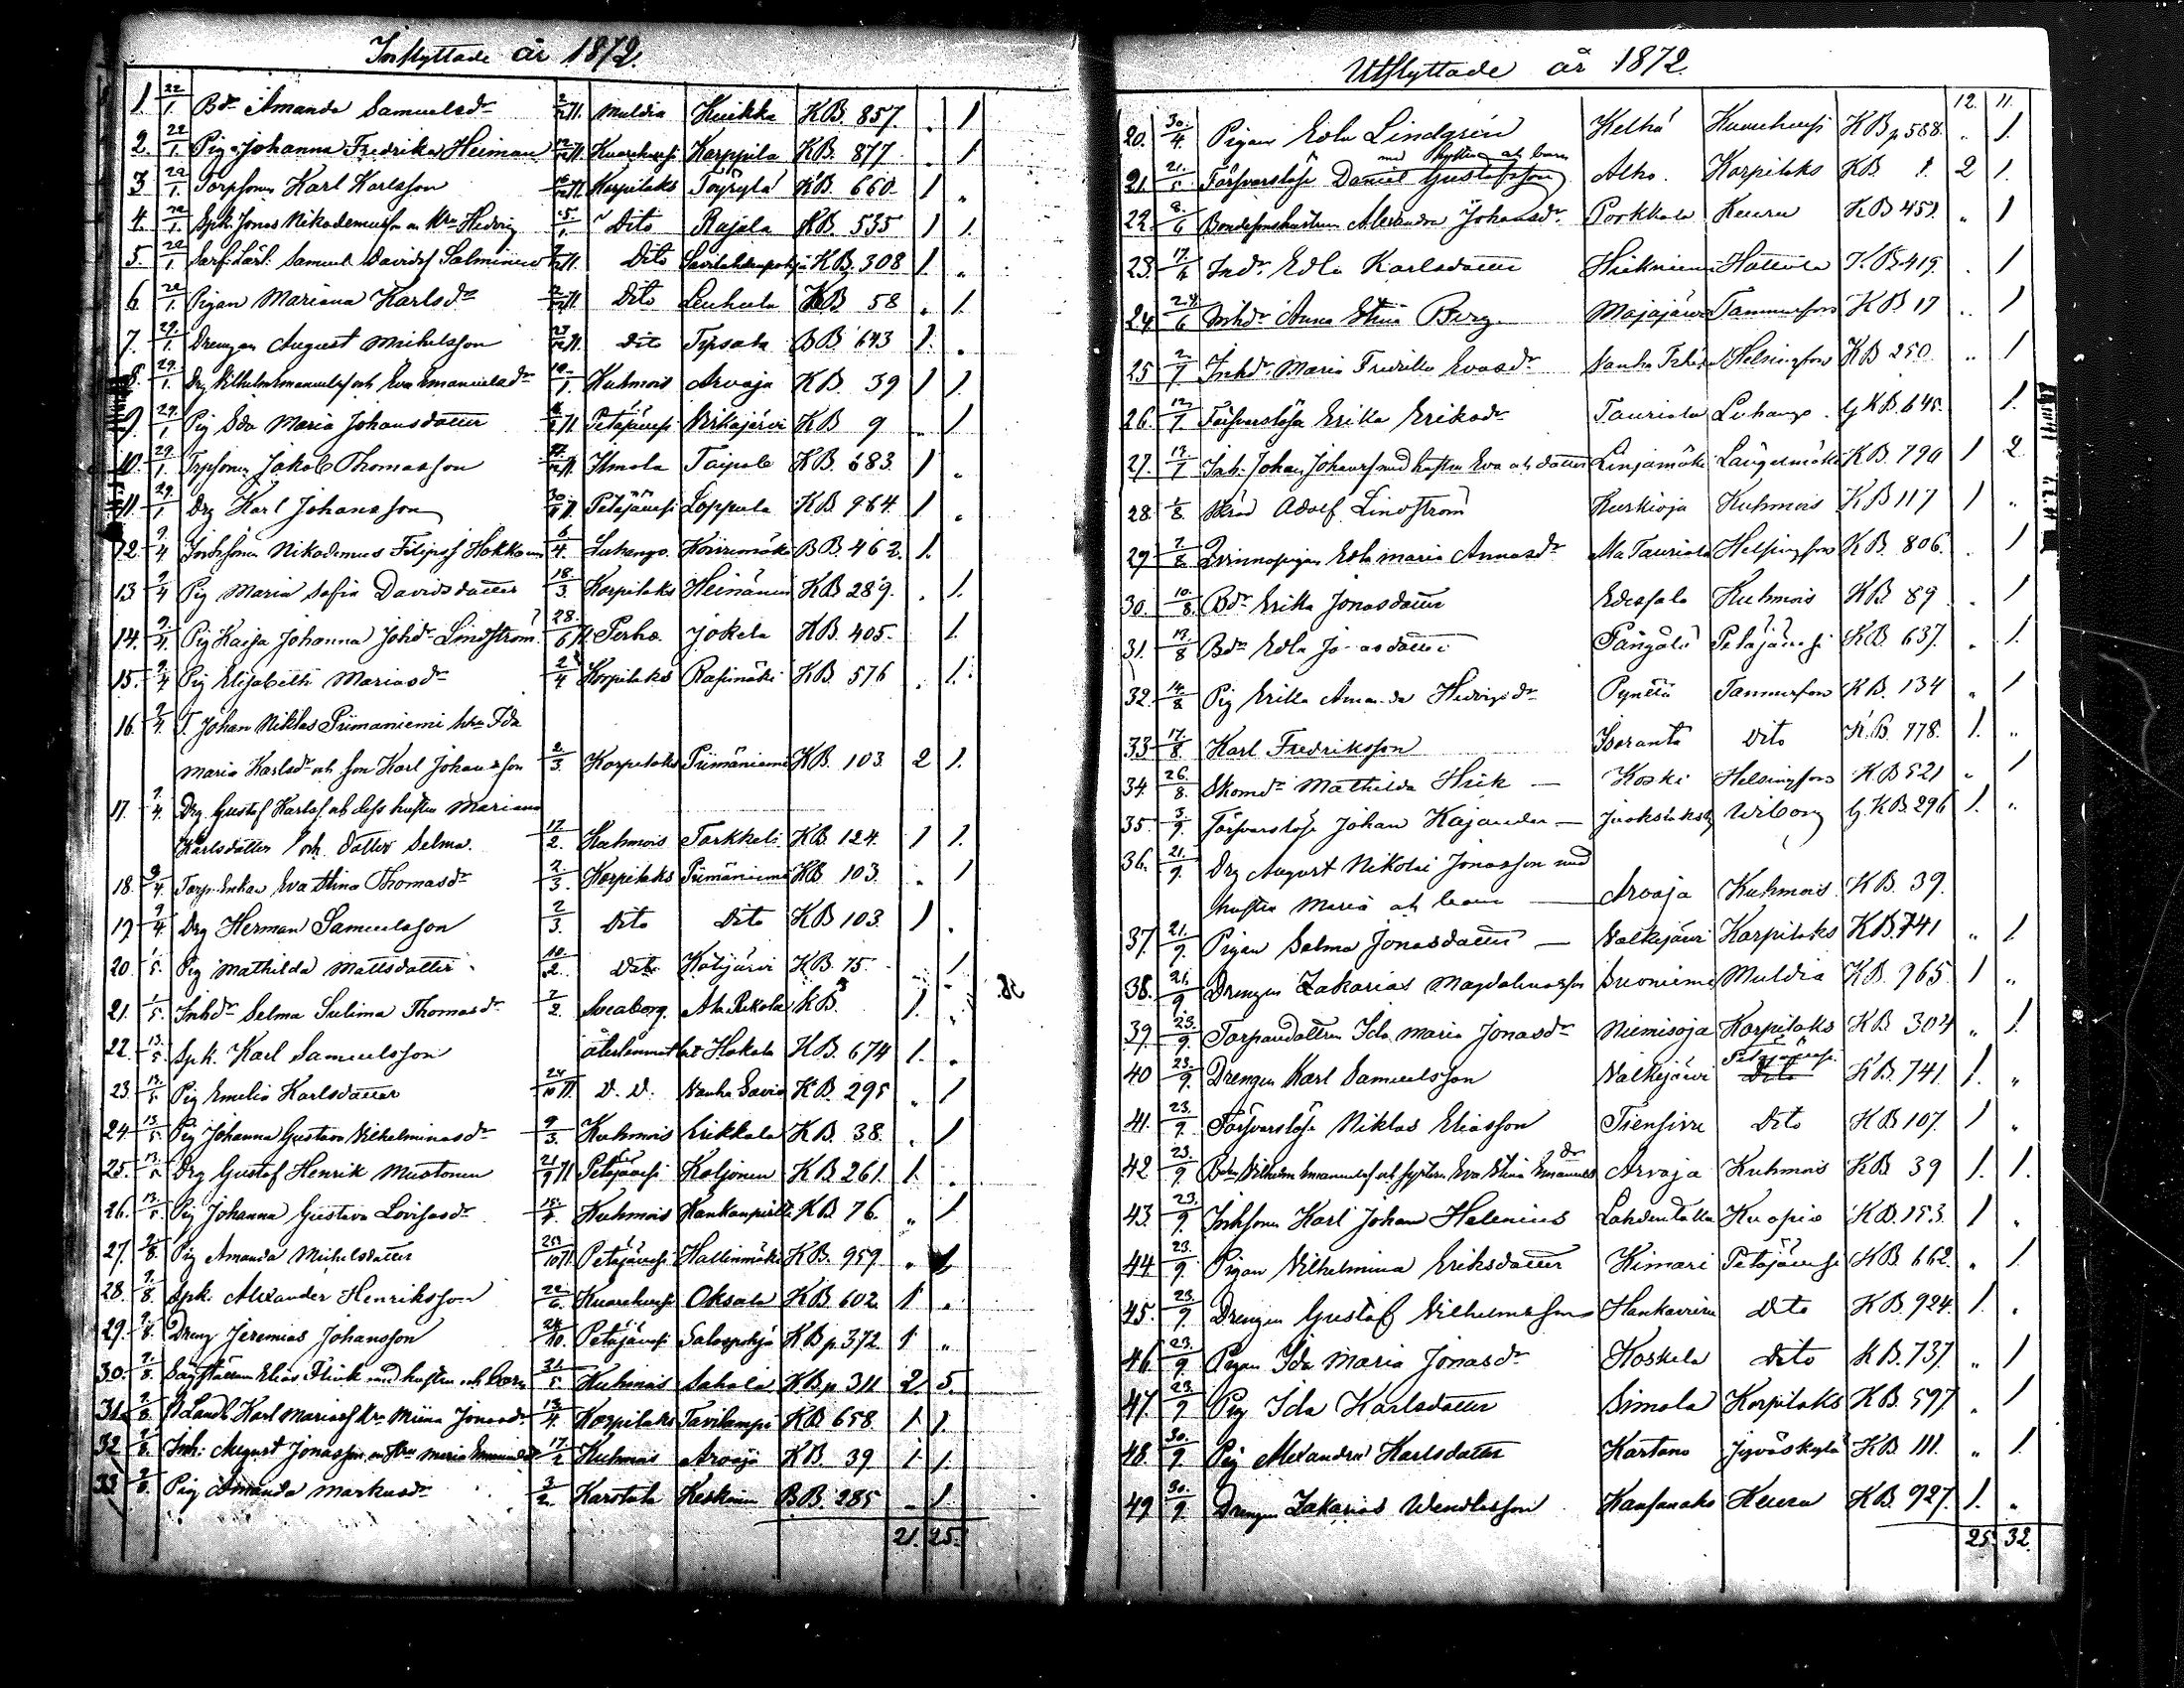 Inflyttade år 1872.
1. 22/1. Bdr Amanda Samuelsdr 2/12 71. Muldia Kuikka KB. 857. . 1
2. 22/1. Piga Johanna Fredrika Heiman 12/12 71. Kuorehvesi Korppila KB. 877 . 1
3 22/1. Torpsonen Karl Karlsson 16/12 71. Korpilaks Töyrylä KB. 660 1 „
4. 22/1. Spk. Jonas Nikodemusson o. hu Hedvig 15/1. Dito Rajala KB. 535 1 1.
5. 22/1 Samuel Davidss Salminen Dito KB. 308 1. „
6 22/1 Pigan Mariana Karlsdr 2/12 71. Dito Leuhula KB 58 „ 1.
7. 29/1. Drengen August Michelsson 23/12 71. Dito Typsala BB 643 1. „
8. 29/1. Drg Vilhelm Emanuelss och Eva Emanuelsdr 10/1. Kuhmois Arvaja KB. 39 1 1.
9. 29/1 Pig Eda Maria Johansdatter Petäjävesi Virkajärvi KB 9 „ 1
10. 29/1. Trpsonen Jakob Thomasson Ilmola Taipale KB. 683. 1 „
11 29/1 Drg Karl Johansson 30/11 71. Petäjävesi Loppula KB 964. 1 „
12. 9/4 Inhssonen Nikodemus Filipss Hokkanen 6/4. Luhango. BB. 462. 1.
13 9/4 Pig Maria Sofia Davidsdatter 18/3. Korpilaks Heinäniemi KB 289. . 1.
14. 9/4. Pig Kaisa Johanna Johdr Lindström. 28/6 71 Perho. Jokela KB. 405. 1.
15. 9/4 Pig Elisabeth Mariasdr 2/4 Korpilaks Rasimäki KB. 576 . 1.
16. 9/4. T. Johan Niklas Piimäniemi hu Ida
Maria Karlsdr och son Karl Johansson 2/3. Korpilaks Piimäniemi KB. 103. 2 1.
17. 9/4. Drg. Gustaf Karlss. och dess hustru Mariana
Karlsdatter och dotter Selma. 17/2. Kuhmois Tarkkela KB. 124. 1 1.
18. 9/4. Torp.Enkan Eva Stina Thomasdr 2/3. Korpilaks Piimäniemi KB. 103. „ 1
19 9/4. Drg Herman Samuelsson 2/3. Dito Dito KB 103. 1 .
20. 1/5. Pig Mathilda Mattsdatter. 10/2. Dito Kotijärvi KB. 75. 1
21. 1/5. Inhdr Selma Sulima Thomasdr 7/2. Sveaborg. Ala Rekola KB. 1. „
22. 13/5 Spk. Karl Samuelsson Hakala KB. 674 1. „
23. 13/5 Pig Emelia Karlsdatter 24/10 71. D. D. Vanha Savio KB. 295 „ 1
24. 13/5 Pig Johanna Gustava Vilhelminasdr 9/3. Kuhmois Erikkala KB. 38. . 1
25. 13/5 Drg Gustaf Henrik Mustonen 21/9 71 Petäjävesi Koljonen KB. 261. 1. .
26. 13/5. Pig Johanna Gustava Lovisasdr 15/4. Kuhmois KB. 76. „ 1
27. 7/8 Pig Amanda Michelsdatter Petäjävesi Hallinmäki KB. 959. . 1
28. 7/8. Spk. Alexander Henriksson 22/6. Kuorehvesi Oksala KB 602. 1 .
29. 7/8. Dreng Jeremias Johansson 24/10. Petäjävesi Salospohja KB p. 372. 1 „
30. 7/8. Elias Flink med hustru och barn 31/5. Kuhmois Sahala KB p 311 2. 5.
31. 7/8. Karl Mariass hu Miina Jonasdr 13/4. Korpilaks Tavilampi KB 658. 1. 1.
32 7/8. Inh: August Jonasson o. hu Maria 17/2 Kuhmois Arvaja KB. 39. 1. 1.
33 7/8. Pig Amanda Markusdr 3/2. Karstula Keskinen BB. 285 „ 1.
21. 25.
Utflyttade år 1872.
12. 11.
20. 30/4. Pigan Edla Lindgrén Kelhä Kuorehvesi KB p 588. „ 1.
med hustru och barn
21. 21/5. Försvarslöse Daniel Gustafsson Alho. Korpilaks KB 1. 2 1.
22. 8/6 Bondesonshustrun Alexandra Johansdr. Porkkala Keuru KB 451. „ 1
23. 17/6 Indr. Edla Karlsdatter Hiekniemi Hattula KB 419. . 1
24 24/6 Inhdr Anna Stina Berg Majajärvi Tammerfors KB 17 „ 1
25 2/7 Inhdr. Maria Fredrika Evasdr Helsingfors KB 250. „ 1
26. 12/7. Försvarslösa Erika Eriksdr Tauriala Luhango. G KB. 645. 1.
27. 17/7 Inh: Johan Johanss med hustru Eva och dotter Linjamäki Längelmäki KB. 790 1 2.
28. 1/8. Adolf Lindström Kurkioja Kuhmois KB 117 1 „
29. 7/8. Qvinnopigan Edla Maria Annasdr Ala Tauriala Helsingfors KB. 806. . 1
30. 10/8. Bdr Erika Jonasdatter Edessalo Kuhmois KB. 89. „ 1
31. 13/8 Bdr Edla Jonasdatter Petäjävesi KB. 637. „ 1.
32. 14/8 Pig Erika Amanda Hedvigsdr Tammerfors KB. 134 „ 1
33 17/8 Karl Fredriksson Isoranta Dito KB. 778. 1. „
34. 26/8. Skomdr Mathilda Stick Koski Helsingfors KB 521 „ 1
35. 3/9. Försvarslöse Johan Kajander Juokslaks Wiborg G. KB 296 1. „
36. 21/9. Drg August Nikolai Jonasson med
hustru Maria och barn Arvaja Kuhmois KB. 39.
37. 21/9. Pigan Selma Jonasdatter Valkejärvi Korpilaks KB. 741 „ 1
38. 21/9. Drengen Zakarias Magdalenasson Suoniemi Muldia KB. 965. 1 „
39. 23/9. Torparedottren Ida Maria Jonasdr Niemisoja Korpilaks KB 304 „ 1.
Petäjävesi.
40 23/9. Drengen Karl Samuelsson Valkejärvi Dito KB. 741. 1. „
41. 23/9. Försvarslöse Niklas Eliasson Tiensirre Dito KB 107. 1 „
42 23/9. Vilhelm Emanuelss och systern Eva Stina Emanuelsdr Arvaja Kuhmois KB 39 1. 1.
43. 23/9. Inhssonen Karl Johan Helenius Kuopio KB. 153. 1 „
44 23/9. Pigan Vilhelmina Eriksdatter Kimari Petäjävesi KB 662. „ 1.
45. 23/9. Drengen Gustaf Vilhelmsson Dito KB. 924. 1. „
46. 23/9. Pigan Ida Maria Jonasdr Koskela Dito KB. 737. „ 1
47. 23/9 Pig Ida Karlsdatter Simola Korpilaks KB. 597 „ 1
48. 30/9. Pig Alexandra Karlsdatter Kartano Jyväskylä KB 111. „ 1.
49 30/9. Drengen Zakarias Wendlasson Kansanaho Keuru KB. 927. 1. „
25. 32.